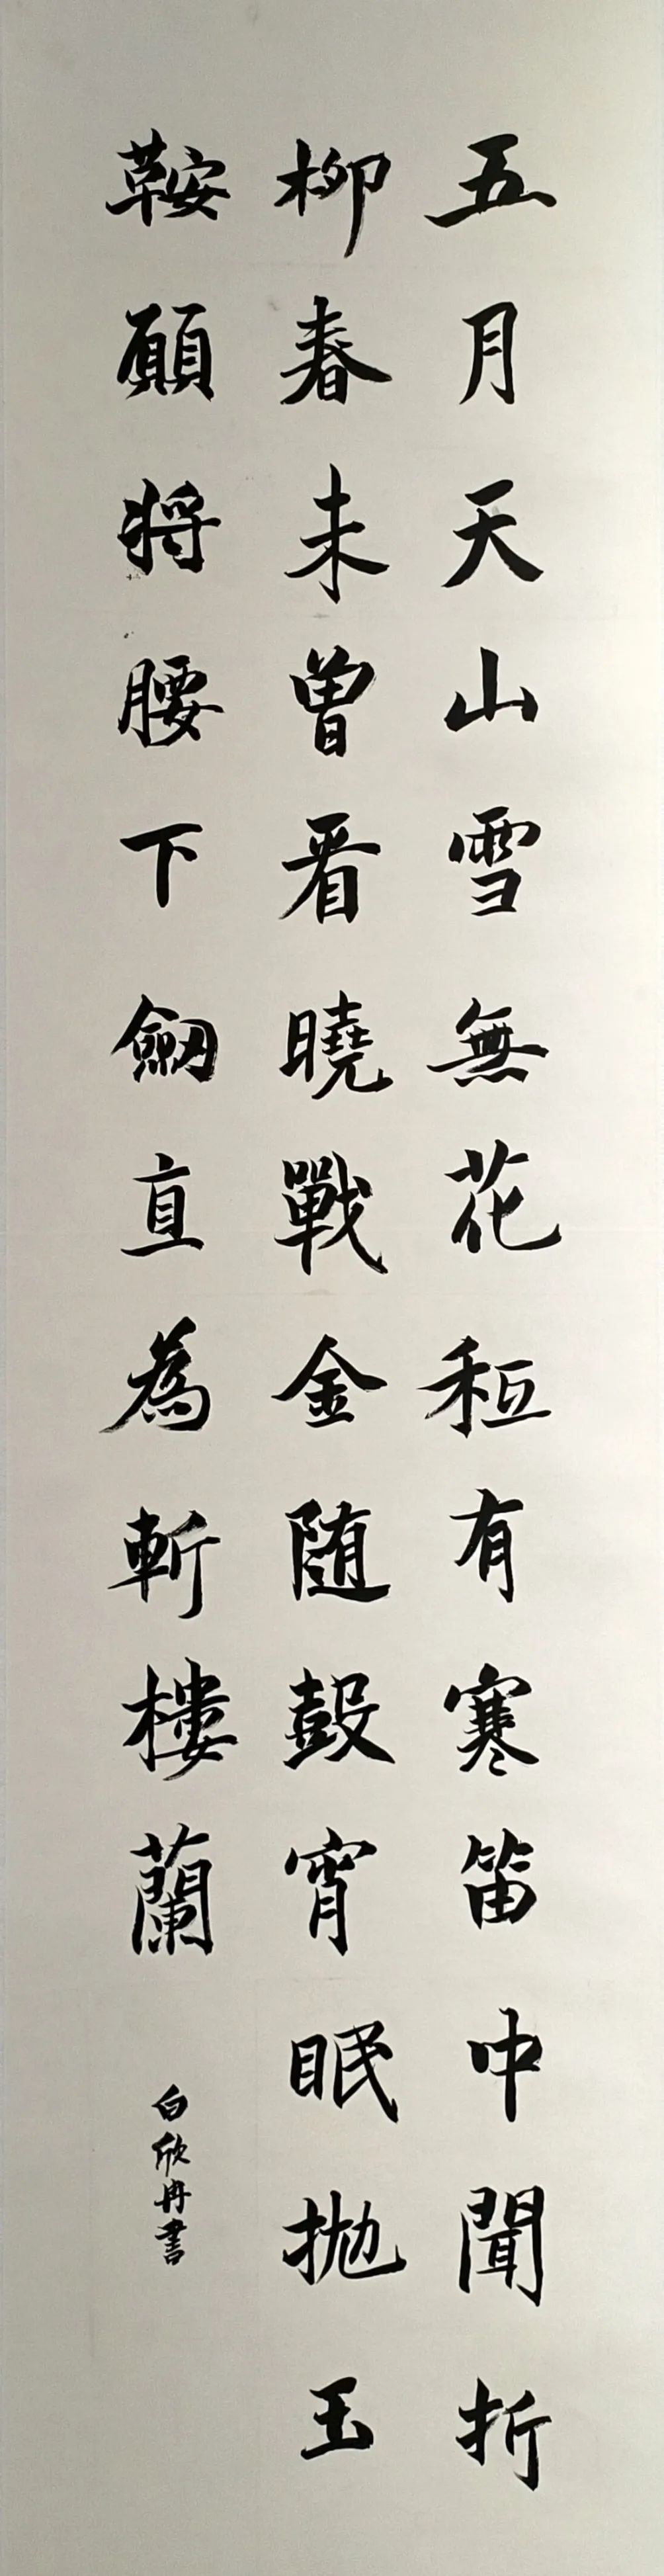 五月天山雪無花秪有寒笛中聞折
柳春未曾看曉戰金随鼓宵眠抛玉
鞍願将腰下劒直為斬樓蘭
白欣冉書